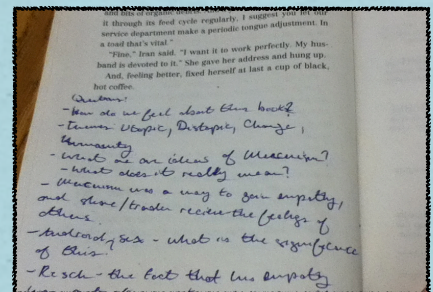 it through its feed cycle regularly. I suggest you let our
service department make a periodic tongue adjustment. In
a toad that's vital."
"Fine," Iran said. "I want it to work perfectly. My hus-
band is devoted to it." She gave her address and hung up.
And, feeling better, fixed herself at last a cup of black,
hot coffee.
- How do we feel about this book?
- Utopia, Distopic, Change,
Humanity
- What are our ideas of Mercerism?
- What does it really mean?
- Mercerism was a way to gain empathy,
and share / receive the feelings of
others.
- Android sex - what is the significance
of this.
- Resch - the fact that his empathy